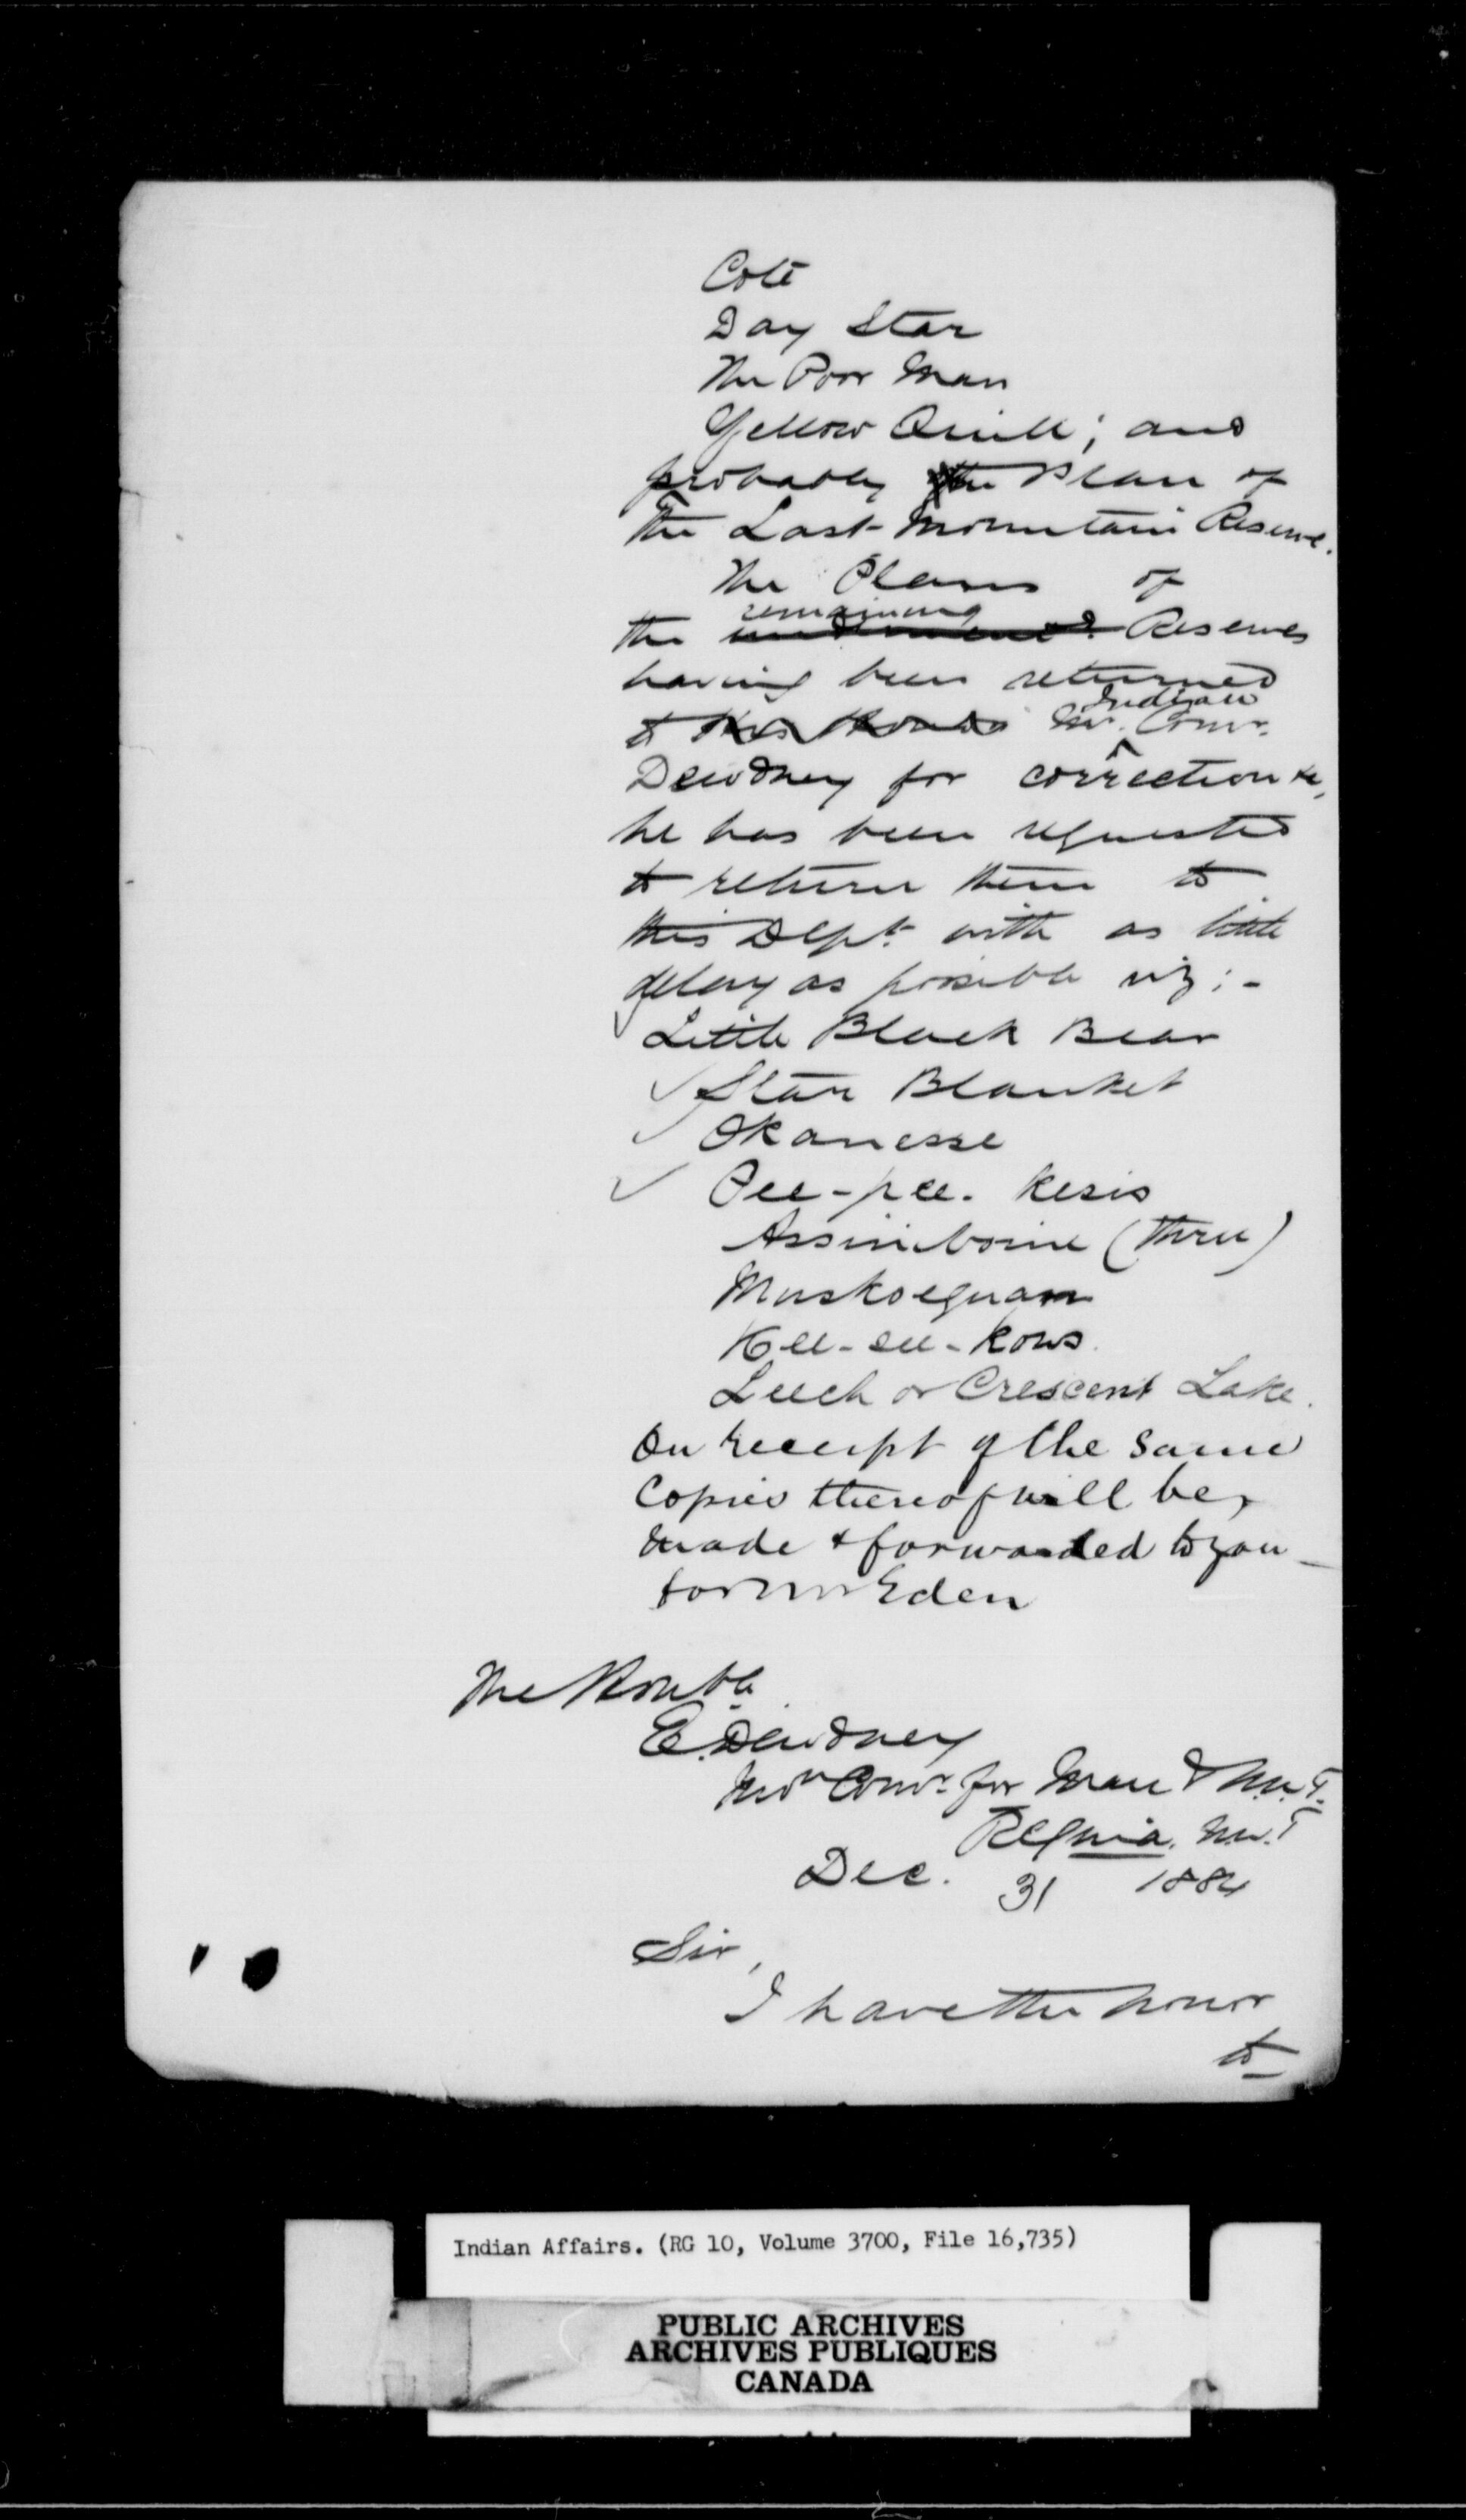 Coté
Day Star
The Poor Man
Yellow Quill; and
probably the Plan of
the Last Mountain Reserve.
The Plans of
remaining
the Reserves
having been returned
Indian
to His Honor Mr. Comr.
Dewdney for correction &c,
he has been requested
to return them to
this Dept. with as little
delay as possible viz:-
Little Black Bear
✓ Star Blanket
✓ Okanesse
✓ Pee-pee-kesis
Assiniboine (three)
Muskoequan
Kee-see-kows.
Leech or Crescent Lake.
On receipt of the same
Copies thereof will be
made & forwarded to you
for Mr Eden
The Honble.
E. Dewdney
Indn Comr. for Man & N.W.T.
Regina. N.W.T
Dec. 31 1884
Sir,
I have the honor
to
Indian Affairs. (RG 10, Volume 3700, File 16,735)
PUBLIC ARCHIVES
ARCHIVES PUBLIQUES
CANADA